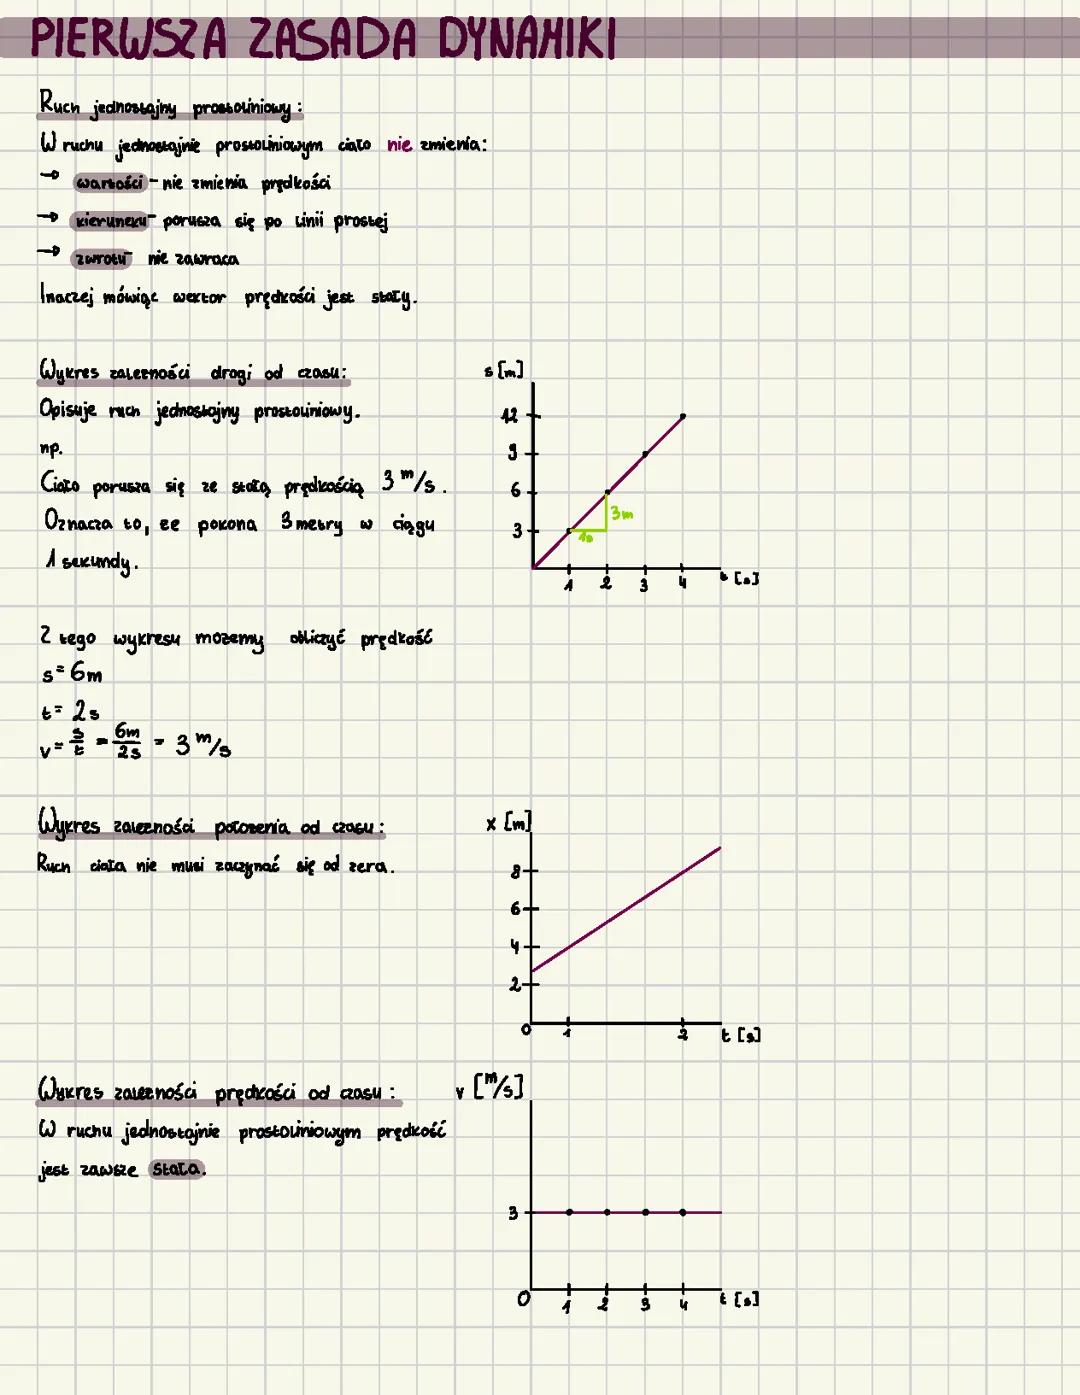 PIERWSZA ZASADA DYNAMIKI
Ruch jednostajny prostoliniowy:
W ruchu jednostajnie prostoliniowym ciało nie zmienia:
→ wartości - nie zmienia prędkości
→ kierunku - porusza się po linii prostej
→ zwrotu - nie zawraca
Inaczej mówiąc wektor prędkości jest stały.
Wykres zależności drogi od czasu:
Opisuje ruch jednostajny prostoliniowy.
np.
Ciało porusza się ze stałą prędkością 3 m/s.
Oznacza to, że pokona 3 metry w ciągu
1 sekundy.
s [m]
12
9
6
3
3m
1s
1 2 3 4 t [s]
Z tego wykresu możemy obliczyć prędkość
s = 6m
t = 2s
v = s/t = 6m/2s = 3 m/s
Wykres zależności położenia od czasu:
Ruch ciała nie musi zaczynać się od zera.
x [m]
8
6
4
2
0 1 2 t [s]
Wykres zależności prędkości od czasu:
W ruchu jednostajnie prostoliniowym prędkość
jest zawsze stała.
v [m/s]
3
0 1 2 3 4 t [s]